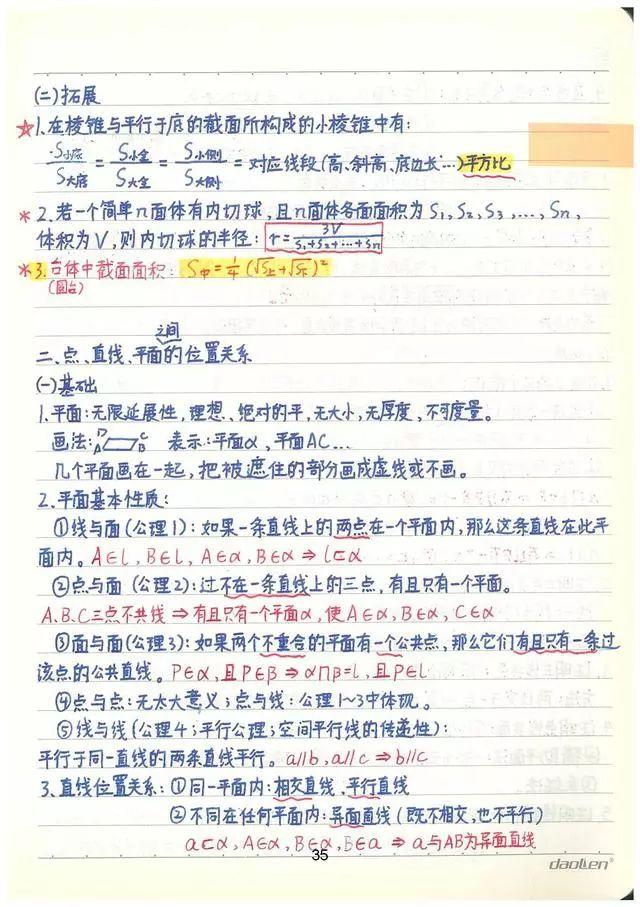 (二)拓展
☆1.在棱锥与平行于底的截面所构成的小棱锥中有:
S小底/S大底 = S小全/S大全 = S小侧/S大侧 = 对应线段(高、斜高、底边长…)平方比
*2.若一个简单n面体有内切球,且n面体各面面积为S₁,S₂,S₃,…,Sn,
体积为V,则内切球的半径: r=3V/(S₁+S₂+…+Sn)
*3.台体中截面面积: S中=¼(√S上+√S下)²
(圆台)
二、点、直线、平面之间的位置关系
(一)基础
1.平面:无限延展性,理想、绝对的平,无大小,无厚度,不可度量。
画法: A B C D 表示:平面α,平面AC…
几个平面画在一起,把被遮住的部分画成虚线或不画。
2.平面基本性质:
①线与面(公理1):如果一条直线上的两点在一个平面内,那么这条直线在此平
面内。A∈l,B∈l,A∈α,B∈α⇒l⊂α
②点与面(公理2):过不在一条直线上的三点,有且只有一个平面。
A.B.C三点不共线⇒有且只有一个平面α,使A∈α,B∈α,C∈α
③面与面(公理3):如果两个不重合的平面有一个公共点,那么它们有且只有一条过
该点的公共直线。P∈α,且P∈β⇒α∩β=l,且P∈l
④点与点:无太大意义;点与线:公理1~3中体现。
⑤线与线(公理4;平行公理;空间平行线的传递性):
平行于同一直线的两条直线平行。a∥b,a∥c⇒b∥c
3.直线位置关系:①同一平面内:相交直线、平行直线
②不同在任何平面内:异面直线(既不相交,也不平行)
a⊂α,A∈α,B∈α,B∈a⇒a与AB为异面直线
35
daoLen